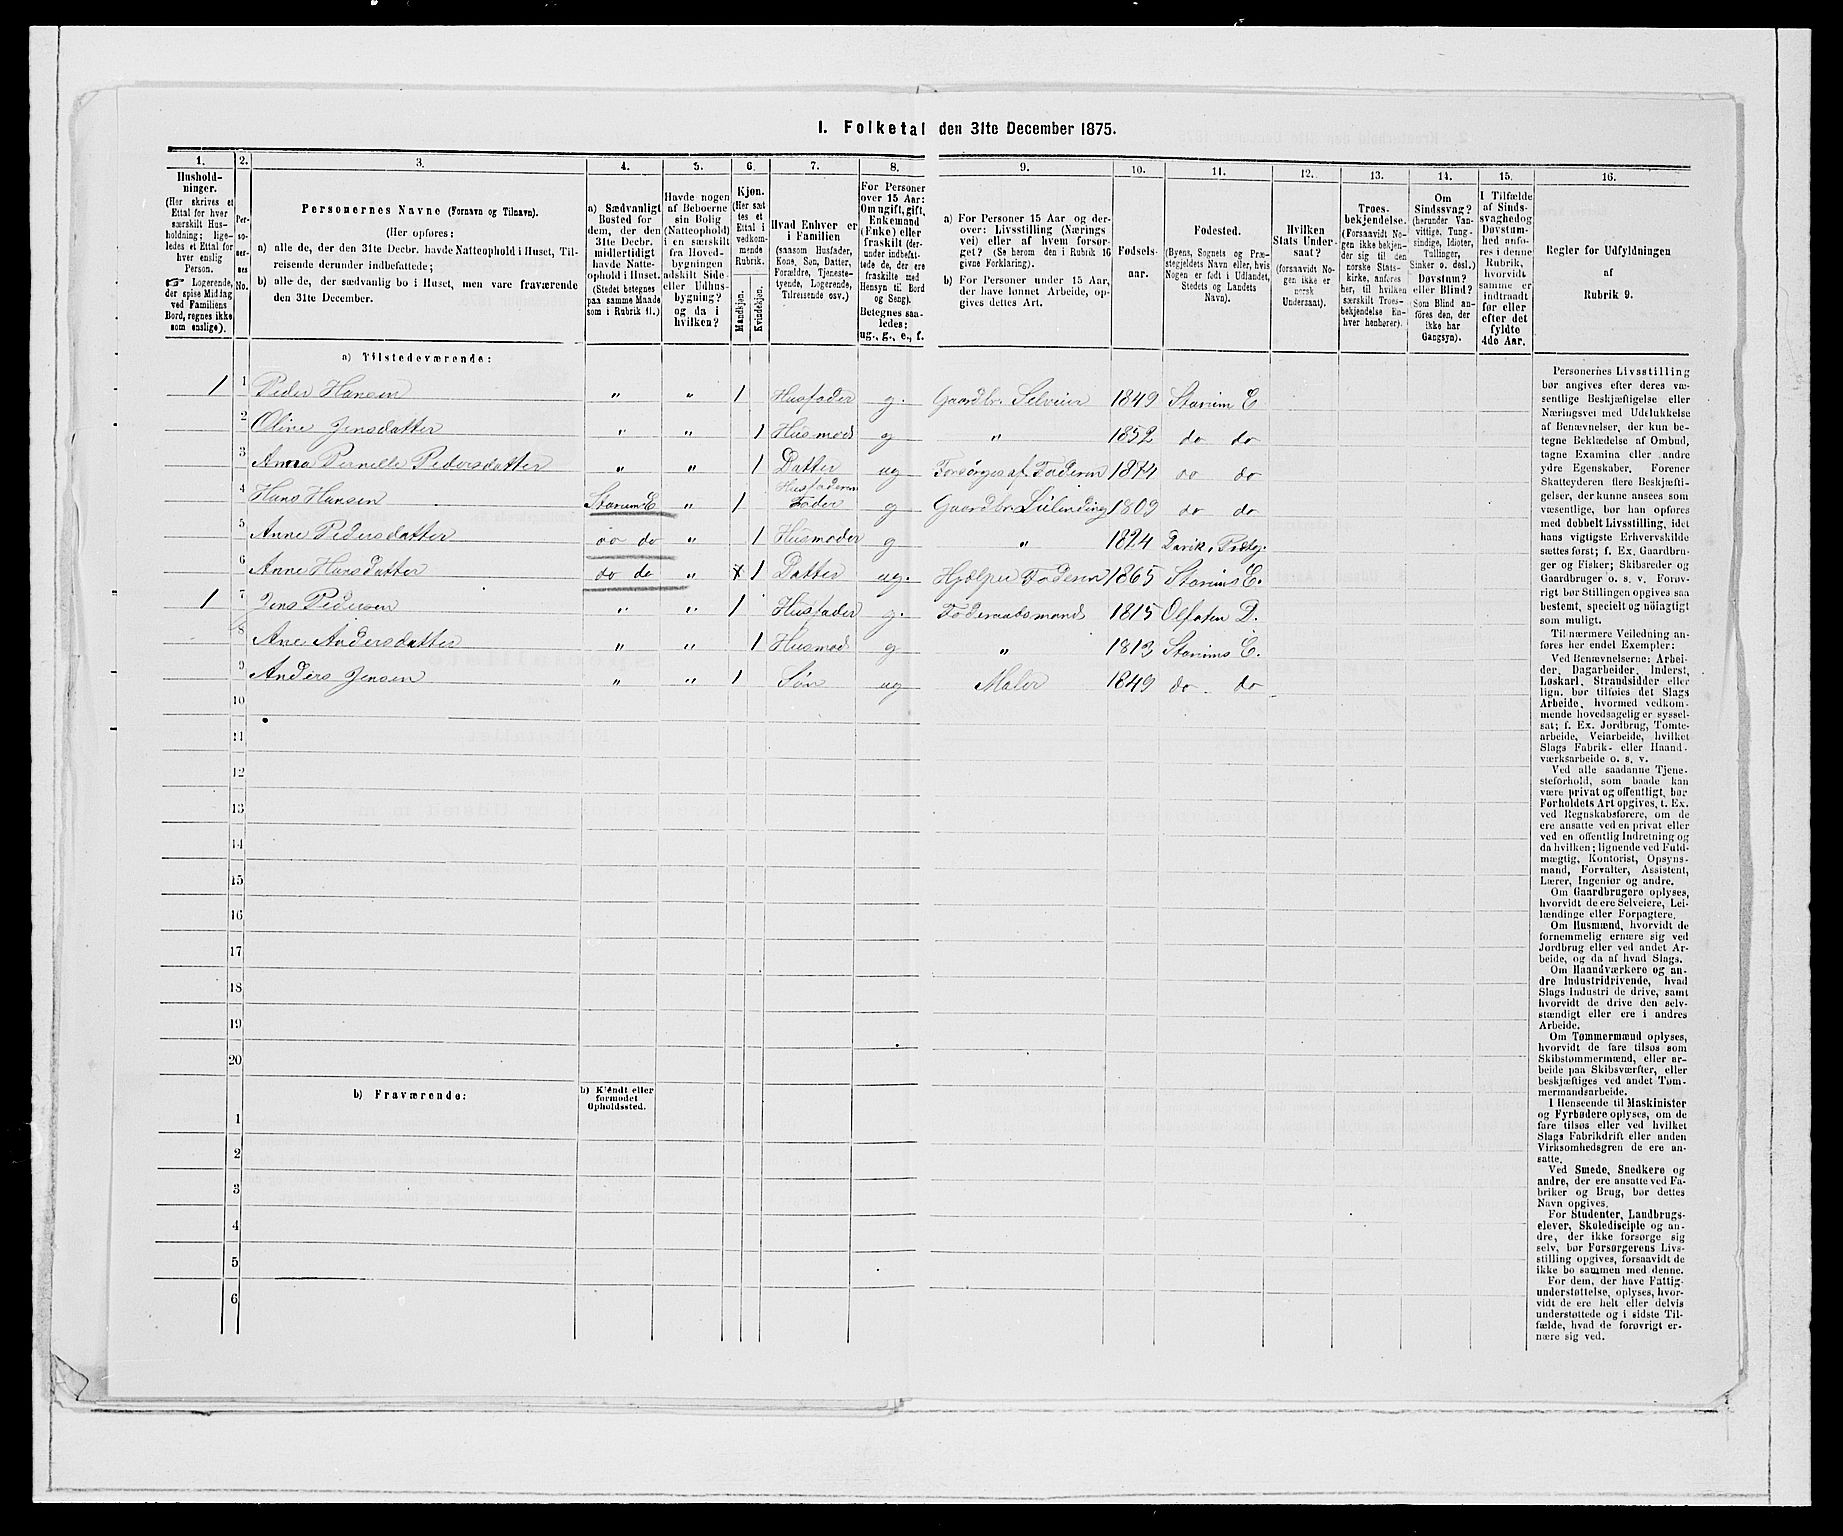 I. Folketal den 31te December 1875.
1. 2. 3. 4. 5. 6. 7. 8. 9. 10. 11. 12. 13. 14. 15. 16.
Hushold-
ninger.
(Her skrives et
Ettal for hver
særskilt Hus-
holdning; lige-
ledes et Ettal for
hver enslig
Person.
☞ Logerende,
der spise Middag
ved Familiens
Bord, regnes ikke
som enslige).
Per-
so-
ner-
nes
No.
Personernes Navne (Fornavn og Tilnavn).
(Her opføres:
a) alle de, der den 31te Decbr. havde Natteophold i Huset, Til-
reisende derunder indbefattede;
b) alle de, der sædvanlig bo i Huset, men vare fraværende
den 31te December.
a) Sædvanligt
Bosted for
dem, der den
31te Decbr.
midlertidigt
havde Natte-
ophold i Huset.
(Stedet betegnes
paa samme Maade
som i Rubrik 11.)
Havde nogen
af Beboerne
sin Bolig
(Natteophold)
i en særskilt
fra Hoved-
bygningen
adskilt Side-
eller Udhus-
bygning?
og da i
hvilken?
Kjøn.
(Her sæt
tes et
Ettal i
vedkom-
mende
Rubrik.
Mandkjøn.
Kvindekjøn.
Hvad Enhver er
i Familien
(saasom Husfader,
Kone, Søn, Datter,
Forældre, Tjeneste-
tyende, Logerende,
Tilreisende osv.)
For Personer
over 15 Aar:
Om ugift, gift,
Enkemand
(Enke) eller
fraskilt (der-
under indbefat-
tede de, der ere
fraskilte med
Hensyn til Bord
og Seng).
Betegnes saa-
ledes:
ug., g., e., f.
a) For Personer 15 Aar og der-
over: Livsstilling (Nærings
vei) eller af hvem forsør-
get? (Se herom den i Rubrik 16
givne Forklaring).
b) For Personer under 15 Aar,
der have lønnet Arbeide, op-
gives dettes Art.
Fødsels-
aar.
Fødested.
(Byens, Sognets og Præ-
stegjeldets Navn eller, hvis
Nogen er født i Udlandet,
Stedets og Landets
Navn).
Hvilken
Stats Under-
saat?
(forsaavidt No-
gen ikke er
norsk
Undersaat).
Troes-
bekjendelse.
(Forsaavidt No-
gen ikke bekjen-
der sig til den
norske Stats-
kirke, anføres
her, til hvilken
særskilt Troes-
bekjendelse En-
hver henhører).
Om
Sindssvag?
(herunder Van-
vittige, Tung-
sindige, Idioter,
Tullinger,
Sinker o. desl.)
Døvstum?
eller Blind?
(Som Blind an-
føres den, der
ikke har
Gangsyn).
I Tilfælde
af Sinds-
svaghed og
Døvstum-
hed anfø-
res i denne
Rubrik,
hvorvidt
samme er
indtraadt
før eller
efter det
fyldte
4de Aar.
Regler for Udfyldningen
af
Rubrik 9.
a) Tilstedeværende:
1 1 Peder Hansen " " 1 Husfader g. Gaardbr. Selveier 1849 Starium E
2 Oline Jensdatter " " 1 Husmod g " 1852 do do
3 Anna Pernille Pedersdatter " " 1 Datter ug Forsørges af Faderen 1874 do do
4 Hans Hansen Starium E " 1 Husfaderen Fader g Gaardbr. 1809 do do
5 Anne Pedersdatter do do " 1 Husmoder g " 1824 Davik
6 Anne Hansdatter do do " 1 Datter ug. Hjælper Faderen 1865 E.
1 7 Jens Pedersen " " 1 Husfader g. Føderaadsmand 1815 D.
8 Ane Andersdatter " " 1 Husmod g " 1813 E.
9 Anders Jensen " " 1 Søn ug Maler 1849 do do
10
11
12
13
14
15
16
17
18
19
20
b) Fraværende:
b) Kjendt eller
formodet
Opholdssted.
1
2
3
4
5
6
Personernes Livsstilling
bør angives efter deres væ-
sentlige Beskjæftigelse eller
Næringsvei med Udelukkelse
af Benævnelser, der kun be-
tegne Beklædelse af Ombud,
tagne Examina eller andre
ydre Egenskaber. Forener
Skatteyderen flere Beskjæfti-
gelser, der kunne ansees som
væsentlige, bør han opføres
med dobbelt Livsstilling, idet
hans vigtigste Erhvervskilde
sættes først; f. Ex. Gaardbru-
ger og Fisker; Skibsreder og
Gaardbruger o. s. v. Forøv-
rigt bør Stillingen opgives saa
bestemt, specielt og nøiagtigt
som muligt.
Til nærmere Veiledning an-
føres her endel Exempler:
Ved Benævnelserne: Arbei-
der, Dagarbeider, Inderst,
Løskarl, Strandsidder eller
lign. bør tilføies det Slags
Arbeide, hvormed vedkom-
mende hovedsagelig er syssel-
sat; f. Ex. Jordbrug, Tomte-
arbeide, Veiarbeide, hvilket
Slags Fabrik- eller Haand-
værksarbeide o. s. v.
Ved alle saadanne Tjene-
steforhold, som baade kan
være privat og offentligt, bør
Forholdets Art opgives, t. Ex.
ved Regnskabsførere, om de
ere ansatte ved en privat eller
ved en offentlig Indretning og
da hvilken; lignende ved Fuld-
mægtig, Kontorist, Opsyns-
mand, Forvalter, Assistent,
Lærer, Ingeniør og andre.
Om Gaardbrugere oplyses,
hvorvidt de ere Selveiere, Lei-
lændinge eller Forpagtere.
Om Husmænd, hvorvidt de
fornemmelig ernære sig ved
Jordbrug eller ved andet Ar-
beide, og da af hvad Slags.
Om Haandværkere og an-
dre Industridrivende, hvad
Slags Industri de drive, samt
hvorvidt de drive den selv-
stændigt eller ere i andres
Arbeide.
Om Tømmermænd oplyses,
hvorvidt de fare tilsøs som
Skibstømmermænd, eller ar-
beide paa Skibsværfter, eller
beskjæftiges ved andet Tøm-
mermandsarbeide.
I Henseende til Maskinister
og Fyrbødere oplyses, om de
fare tilsøs eller ved hvilket
Slags Fabrikdrift eller anden
Virksomhedsgren de ere an-
satte.
Ved Smede, Snedkere og
andre, der ere ansatte ved Fa-
briker og Brug, bør dettes
Navn opgives.
For Studenter, Landbrugs-
elever, Skoledisciple og an-
dre, der ikke forsørge sig
selv, bør Forsørgerens Livs-
stilling opgives, forsaavidt de
ikke bo sammen med denne.
For dem, der have Fattig-
understøttelse, oplyses, hvor-
vidt de ere helt eller delvis
understøttede og i sidste Til-
fælde, hvad de forøvrigt er-
nære sig ved.